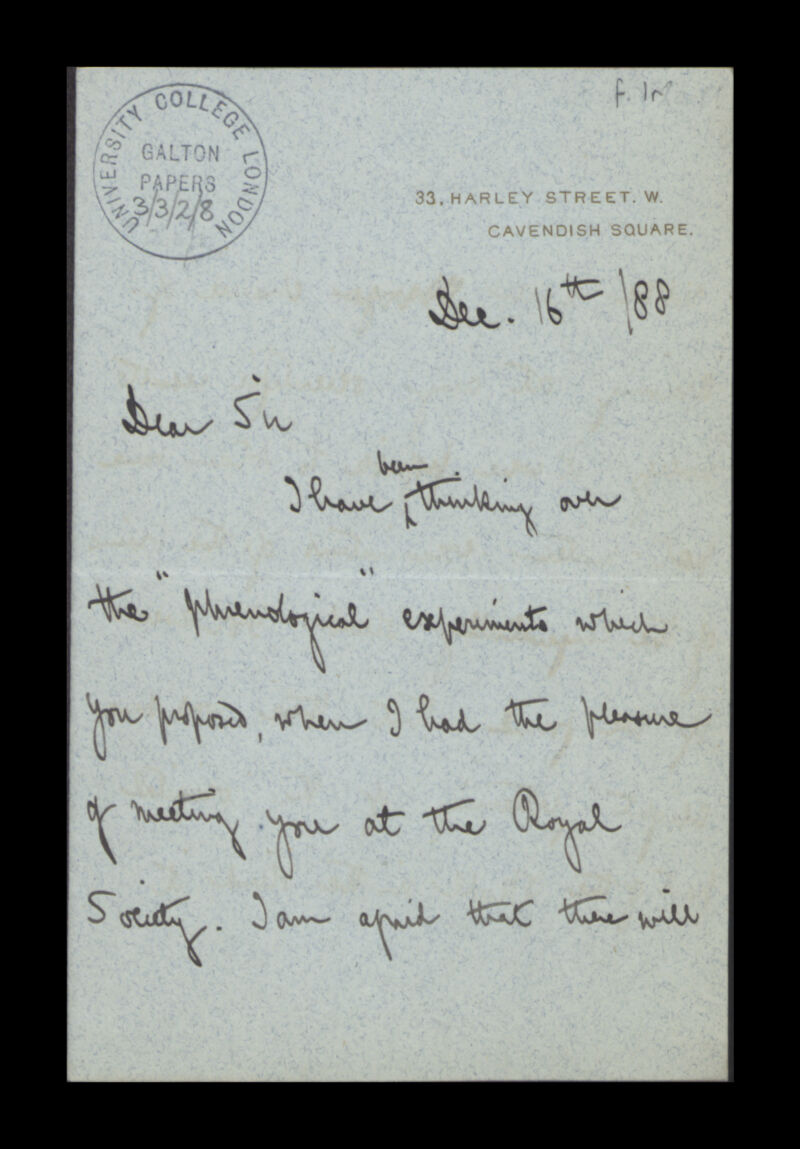 f. 1r
UNIVERSITY COLLEGE LONDON
GALTON
PAPERS
3/3/2/8
33, HARLEY STREET. W.
CAVENDISH SQUARE.
Dec. 16th /88
Dear Sir
been
I have ^ thinking over
the "phrenological" experiments which
you proposed, when I had the pleasure
of meeting you at the Royal
Society. I am afraid that there will